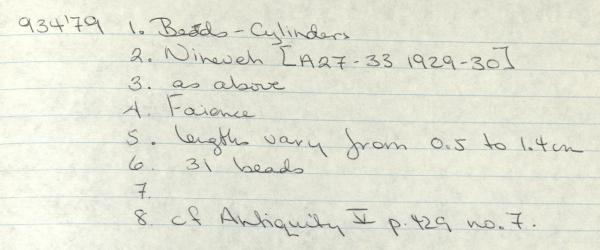 934'79 1. Beads - Cylinders
2. Nineveh [A27-33 1929-30]
3. as above
4. Faience
5. lengths vary from 0.5 to 1.4cm
6. 31 beads
7.
8. cf Antiquity V p.429 no.7.